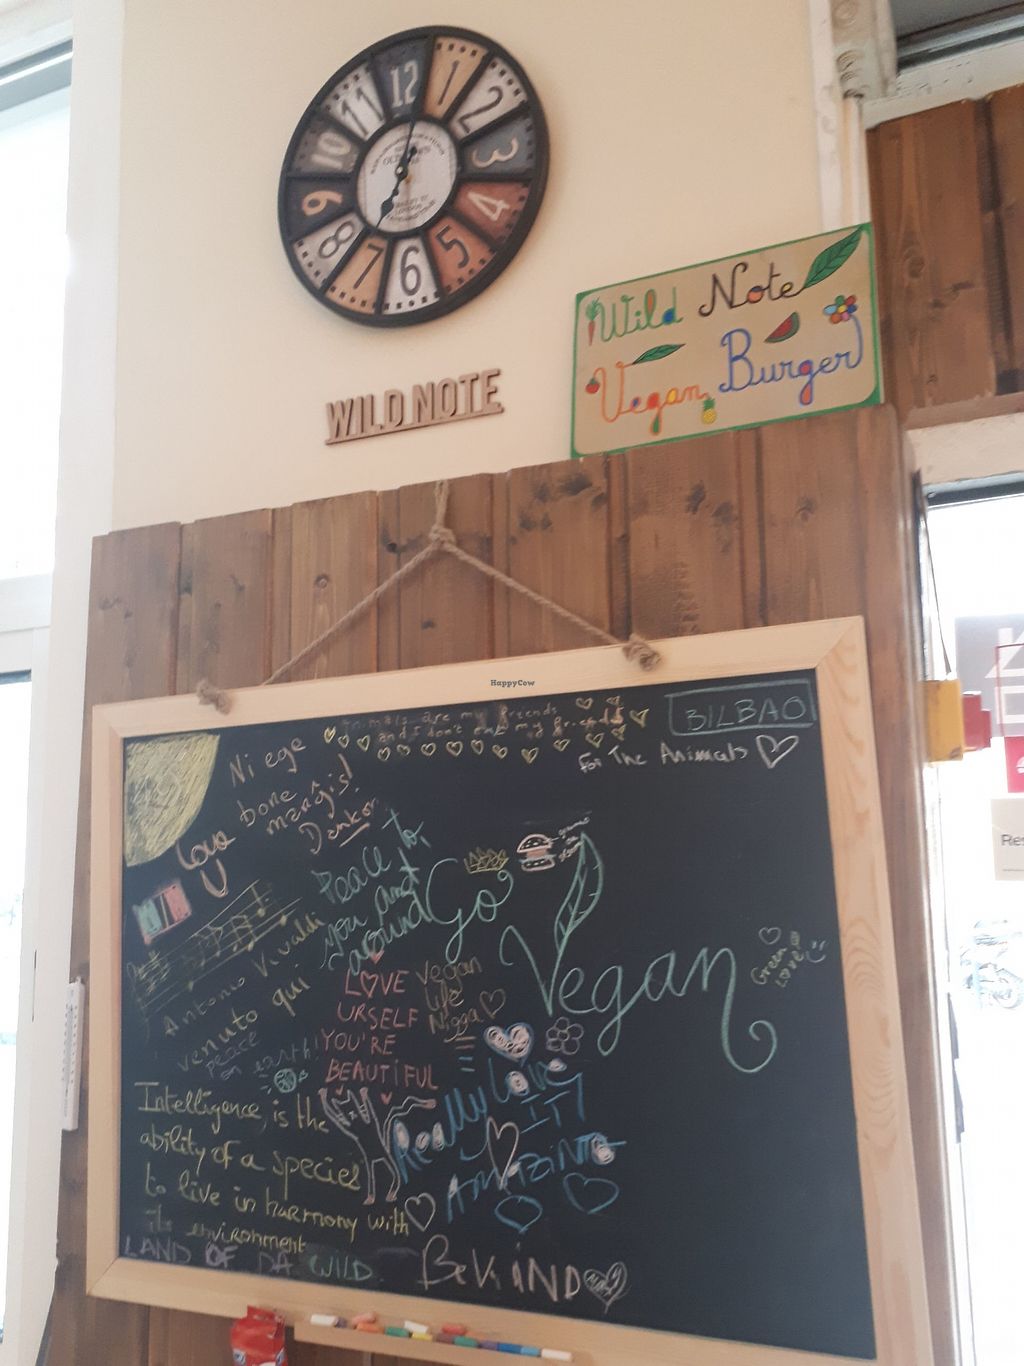 12
1
2
3
4
5
6
7
8
9
10
11
OLD TOWN
LONDON
WILD NOTE
Wild Note
Vegan Burger
HappyCow
Animals are my friends
and I don't eat my friends
BILBAO
For The Animals
Ni ege
bone
marĝis!
Dankon
Love
U
Peace to
you and
around
Go
Vegan
Green
Love
Antonio Vivaldi
venuto qui
peace
on earth!
LOVE
URSELF
YOU'RE
BEAUTIFUL
Vegan
life
Nigga
Really Love
IT!
Amazing
Intelligence is the
ability of a species
to live in harmony with
its environment
LAND OF DA WILD
Be KiND